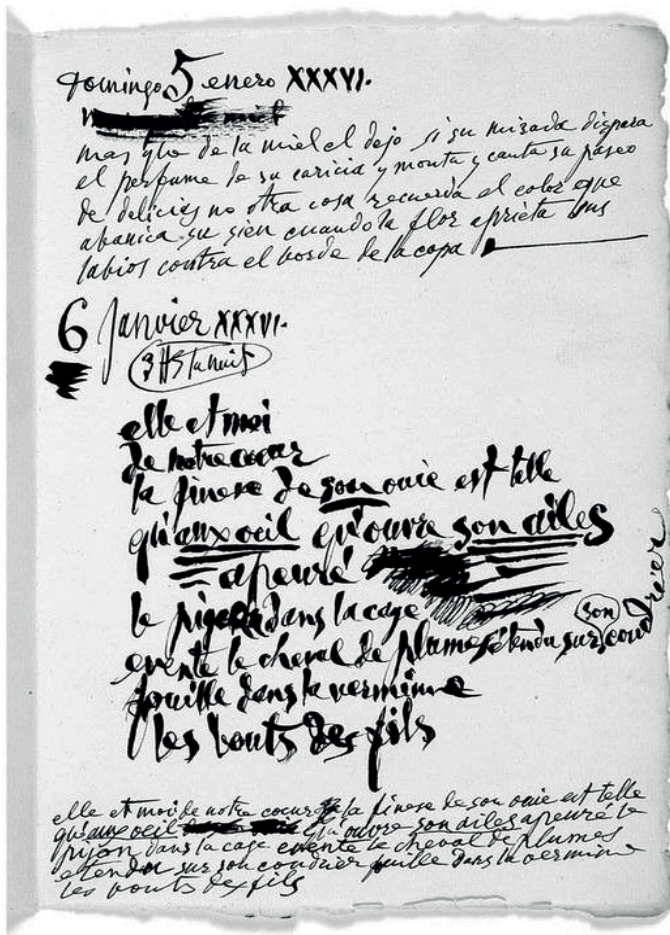 domingo 5 enero XXXVI.
miel
mas que de la miel el dejo si su mirada dispara
el perfume de su caricia y monta y canta su paseo
de delicias no otra cosa recuerda el color que
abanica su sien cuando la flor aprieta sus
labios contra el borde de la copa
6 janvier XXXVI.
3 HS la nuit
elle et moi
de notre cœur
la finese de son ouie est telle
qu'aux oeil qu'ouvre son ailes
apeuré
le pigeon dans la cage
evente le cheval de plumes étendu sur son coudrier
fouille dans la vermine
les bouts des fils
elle et moi de notre coeur la finese de son ouie est telle
qu'aux oeil qu'ouvre son ailes apeuré le
pijon dans la cage evente le cheval de plumes
etendu sur son coudrier fouille dans la vermine
les bouts des fils